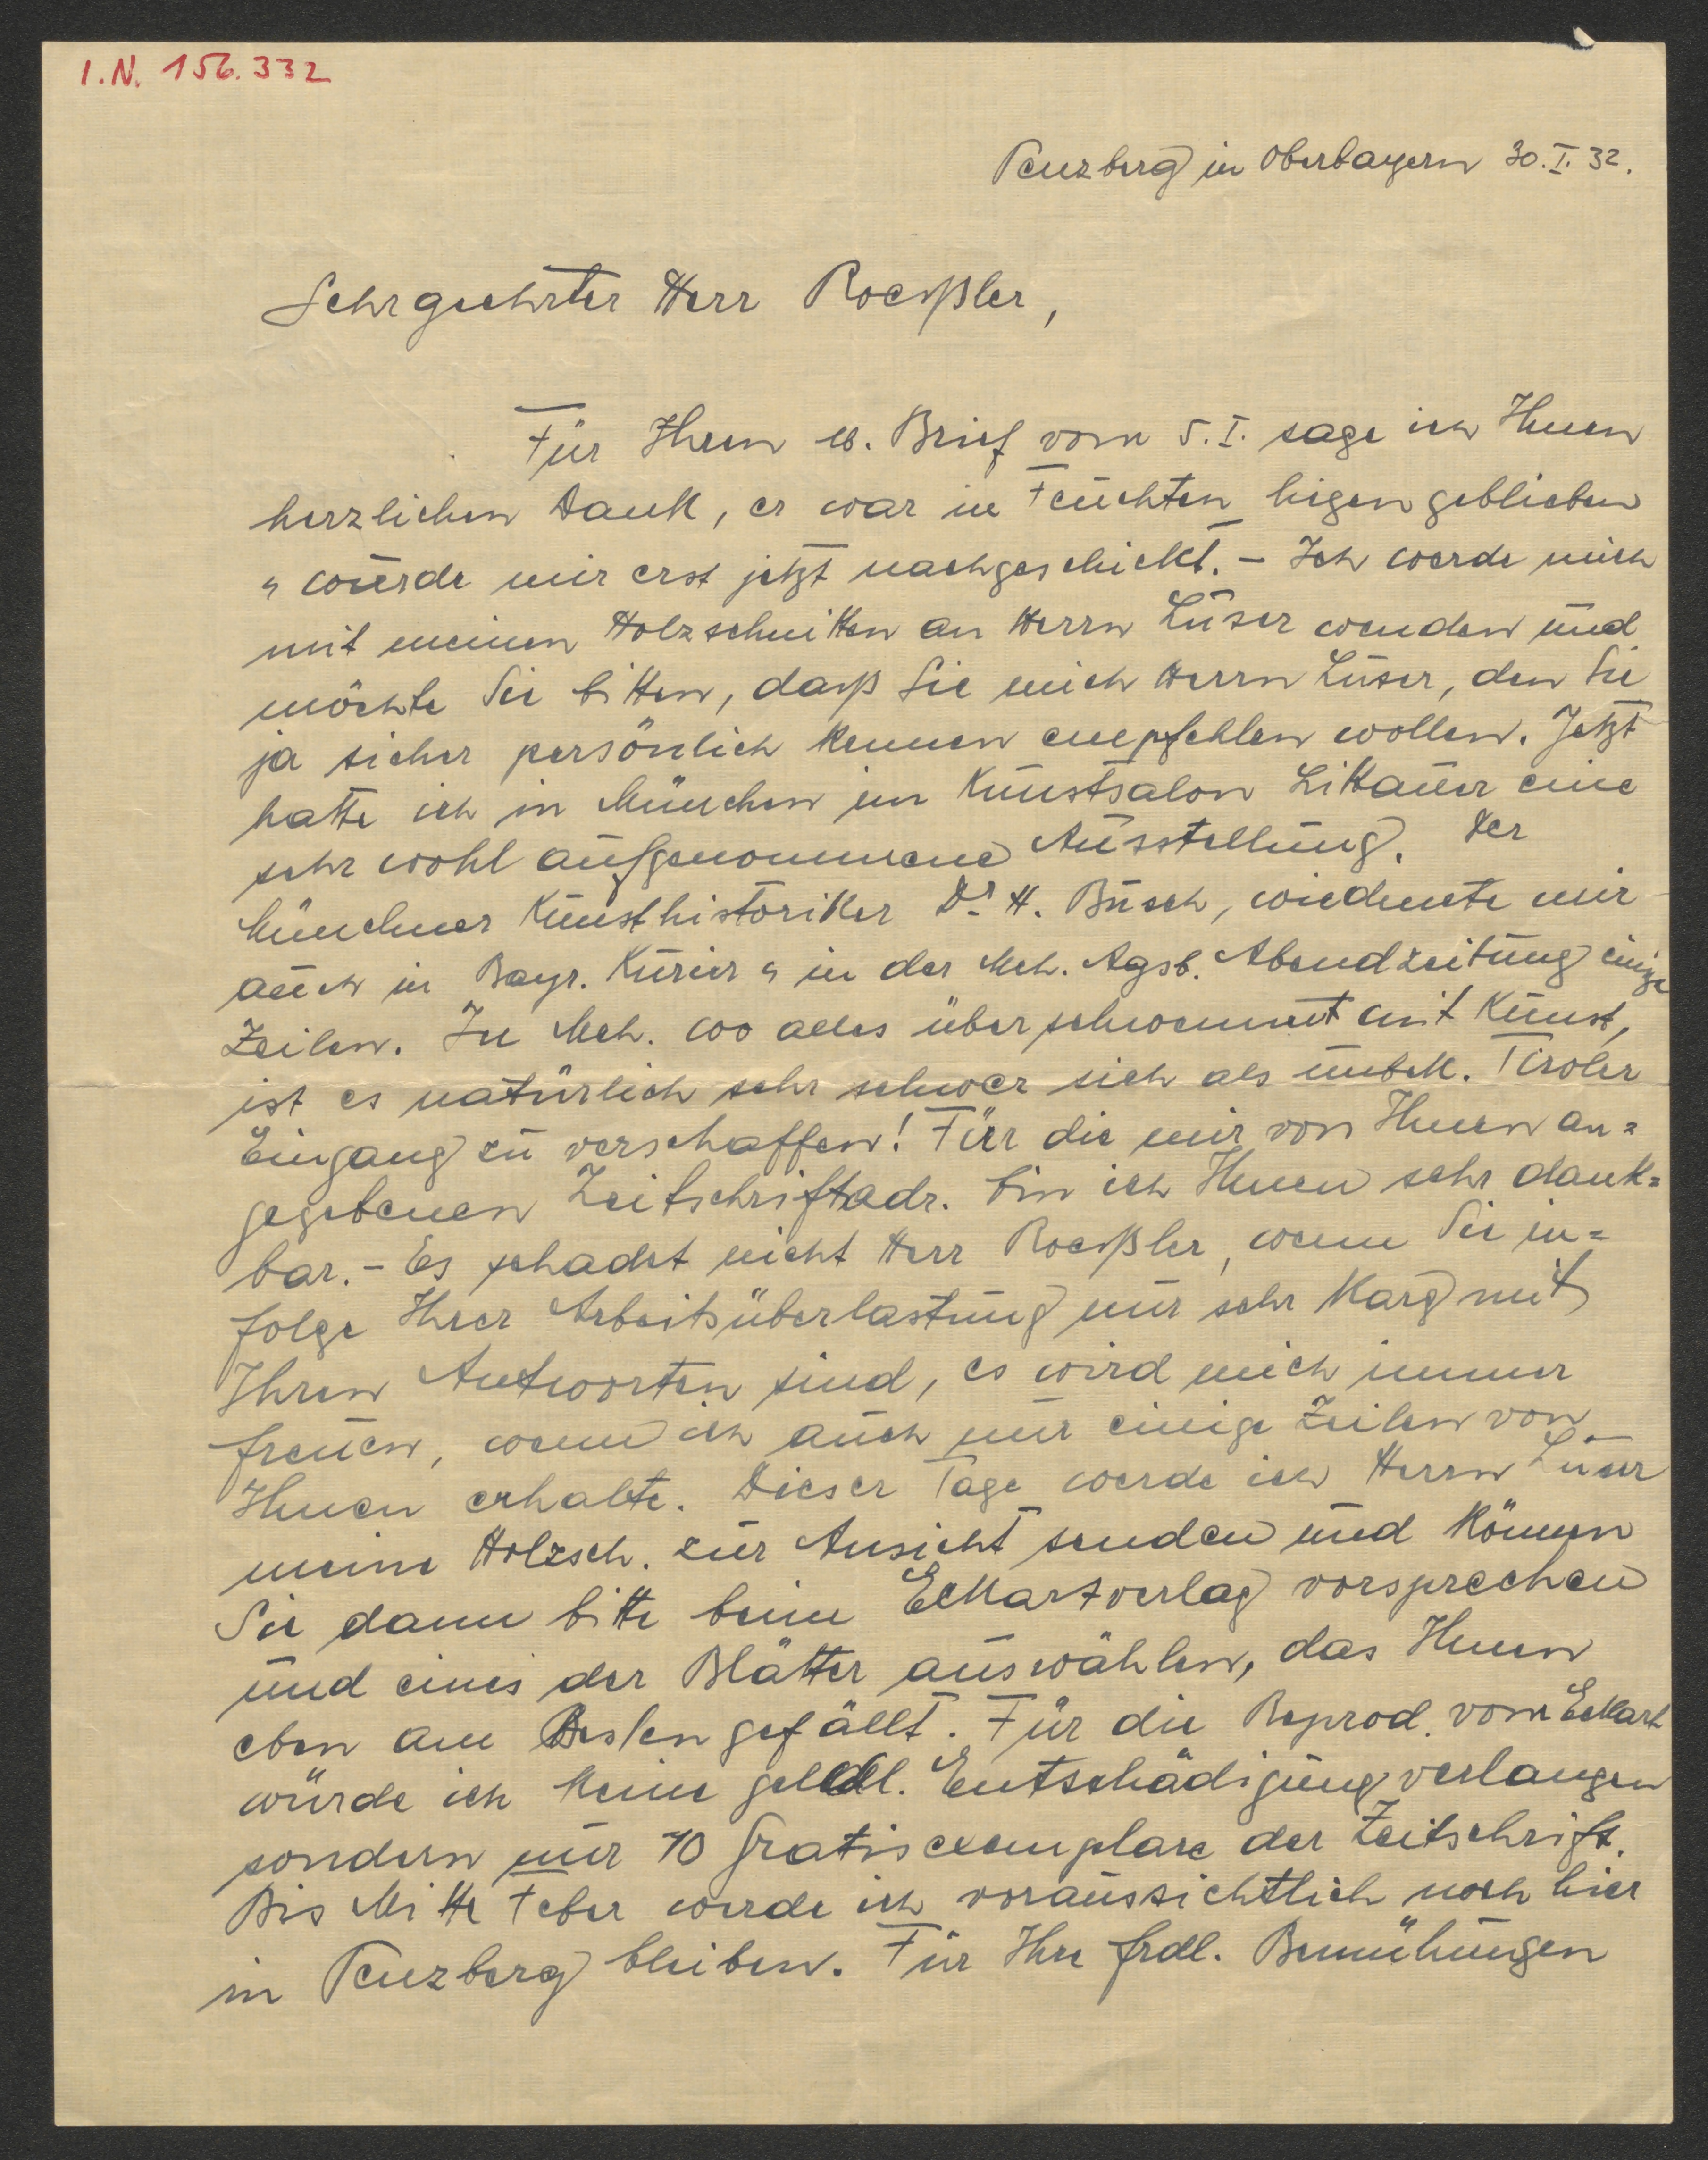 I.N. 156.332
Penzberg in Oberbayern 30.I.32.
Sehrgeehrter Herr Roessler,
Für Ihren w. Brief vom 5.I. sage ich Ihnen
herzlichen Dank, er war in Feuchten liegen geblieben
u wurde mir erst jetzt nachgeschickt. – Ich werde mich
mit meinen Holzschnitten an Herrn Luser wenden und
möchte Sie bitten, dass Sie mich Herrn Luser, den Sie
ja sicher persönlich kennen empfehlen wollen. Jetzt
hatte ich in München im Kunstsalon Littauer eine
sehr wohl aufgenommene Ausstellung. Der
Münchner Kunsthistoriker Dr. H. Busch, wiedmete mir
auch in Bayr. Kurier u in der Mch. Agsb. Abendzeitung einige
Zeilen. In Mch. wo alles überschwemmt mit Kunst,
ist es natürlich sehr schwer sich als unbek. Tiroler
Eingang zu verschaffen! Für die mir von Ihnen an=
gegebenen Zeitschriftadr. bin ich Ihnen sehr dank=
bar. – Es schadet nicht Herr Roessler, wenn Sie in=
folge Ihrer Arbeitsüberlastung nur sehr karg mit
Ihren Antworten sind, es wird mich immer
freuen, wenn ich auch nur einige Zeilen von
Ihnen erhalte. Dieser Tage werde ich Herrn Luser
meine Holzsch. zur Ansicht senden und können
Sie dann bitte beim Eckartverlag vorsprechen
und eines der Blätter auswählen, das Ihnen
eben am Besten gefällt. Für die Reprod. vom Eckart
würde ich keine geldl. Entschädigung verlangen
sondern nur 10 Gratisexemplare der Zeitschrift.
Bis Mitte Feber werde ich voraussichtlich noch hier
in Penzberg bleiben. Für Ihre frdl. Bemühungen